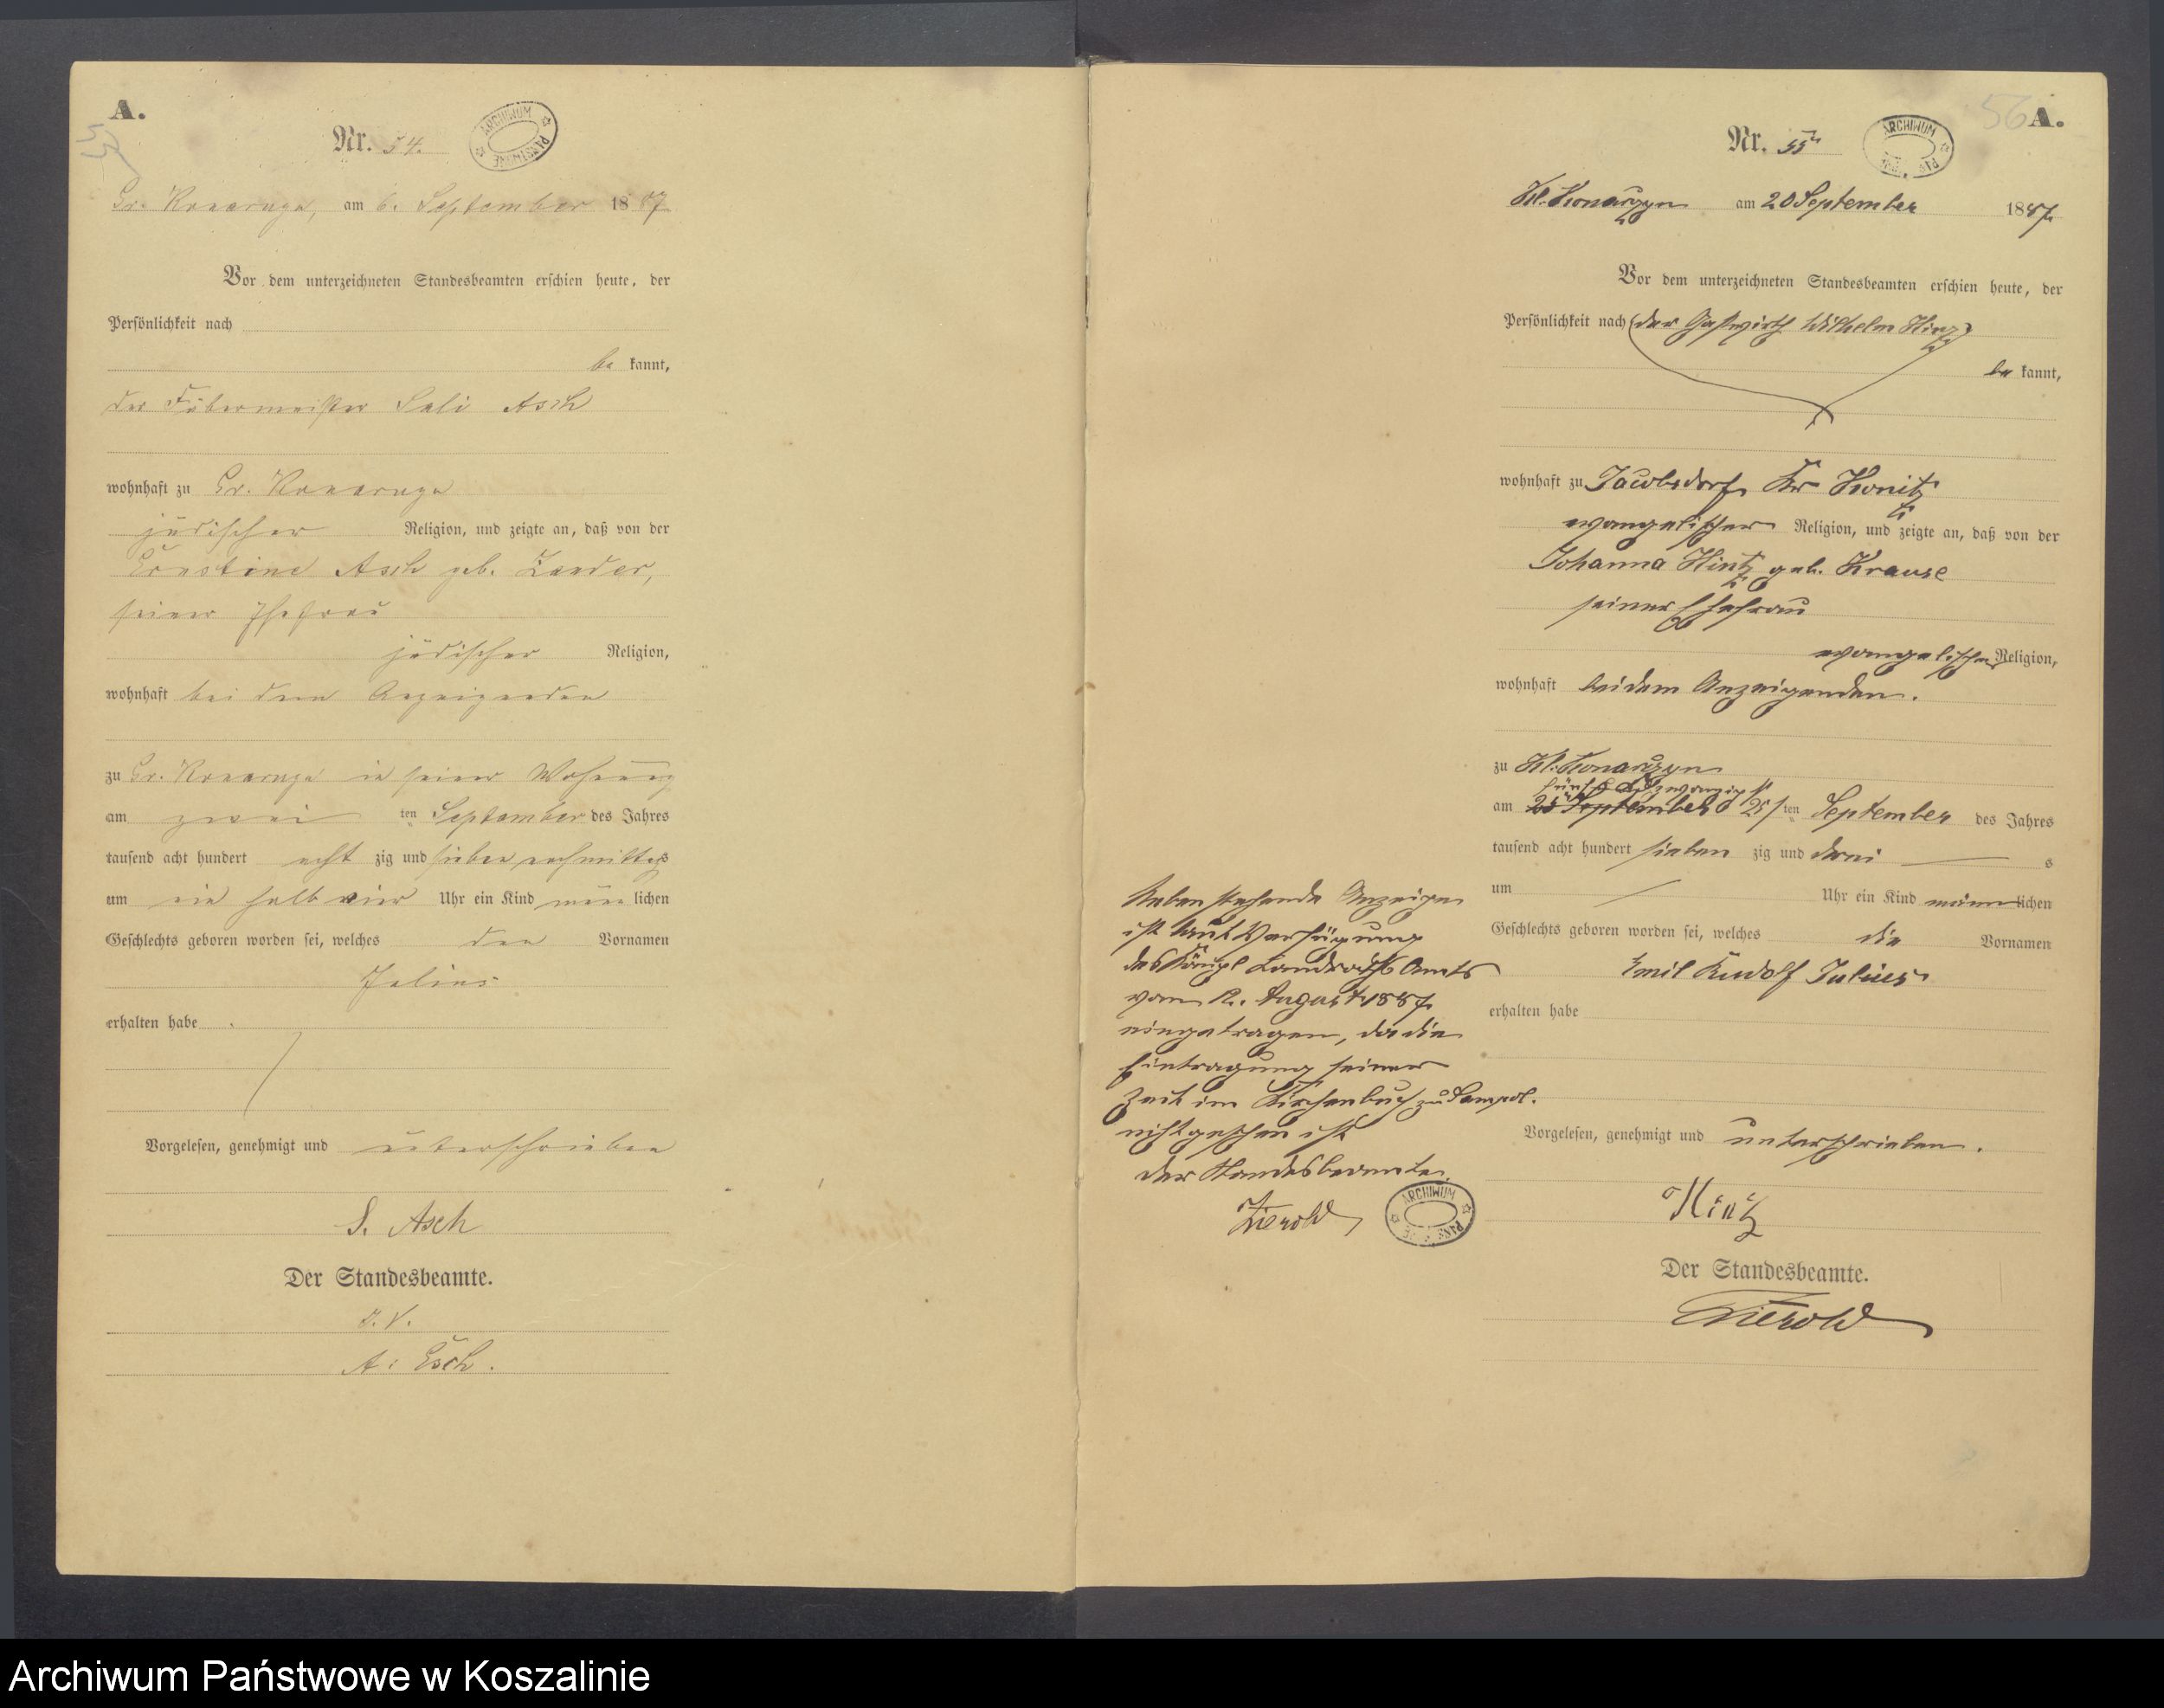 A.
55
Nr. 54.
ARCHIWUM PAŃSTWOWE
Gr. Konarczyn, am 6. September 1887
Vor dem unterzeichneten Standesbeamten erschien heute, der
Persönlichkeit nach
be kannt,
der Färbermeister Sali Asch
wohnhaft zu Gr. Konarczyn
jüdischer Religion, und zeigte an, daß von der
Ernstine Asch geb. Zander,
seiner Ehefrau
jüdischer Religion,
wohnhaft bei dem Anzeigenden
zu Gr. Konarczyn in seiner Wohnung
am zwei ten September des Jahres
tausend acht hundert acht zig und sieben nachmittags
um ein halb vier Uhr ein Kind männ lichen
Geschlechts geboren worden sei, welches den Vornamen
Julius
erhalten habe
Vorgelesen, genehmigt und unterschrieben
S. Asch
Der Standesbeamte.
I. V.
A. Esch.
56 A.
Nr. 55
ARCHIWUM
Kl. Konarczyn am 20 September 1887
Vor dem unterzeichneten Standesbeamten erschien heute, der
Persönlichkeit nach (der Gastwirth Wilhelm Hintz)
be kannt,
wohnhaft zu Jacobsdorf Kr Konitz
evangelischer Religion, und zeigte an, daß von der
Johanna Hintz geb. Krause
seiner Ehefrau
evangelischer Religion,
wohnhaft bei dem Anzeigenden.
zu Kl. Konarczyn
fünf u zwanzigst
am 25 September (25/ ten September des Jahres
tausend acht hundert sieben zig und drei s
um Uhr ein Kind männ lichen
Geschlechts geboren worden sei, welches die Vornamen
Emil Rudolf Julius
erhalten habe
Vorgelesen, genehmigt und unterschrieben.
Hintz
Der Standesbeamte.
Zierold
Nebenstehende Anzeige
ist laut Verfügung
des Königl Landraths Amts
vom August 1887
eingetragen, da die
Eintragung seiner
Zeit im Kirchenbuch zu Sampol.
nicht geschehen ist
Der Standesbeamte.
Zierold
ARCHIWUM PAŃSTWOWE
Archiwum Państwowe w Koszalinie